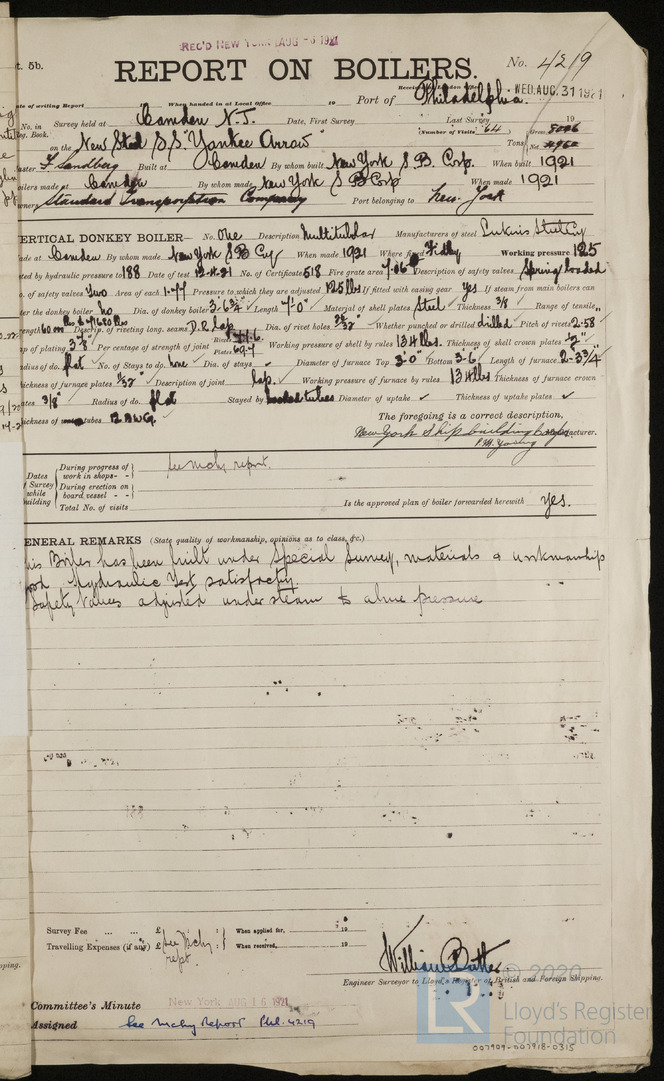 REC'D NEW YORK AUG -6 1921
t. 5b.
REPORT ON BOILERS.
No. 4219
WED. AUG. 31 1921
ate of writing Report When handed in at Local Office 19 Port of Philadelphia
No. in Survey held at Camden N.J. Date, First Survey Last Survey 19
eg. Book. (Number of Visits 64
on the New Steel S/S "Yankee Arrow" Tons Gross 8046
Net
aster F Sandberg Built at Camden By whom built New York S.B. Corp. When built 1921
oilers made at Camden By whom made New York S B Corp When made 1921
wners Standard Transportation Company Port belonging to New York
ERTICAL DONKEY BOILER No. One Description Multitubular Manufacturers of steel Lukins Steel Coy
ade at Camden By whom made New York S B Coy When made 1921 Where fixed Fidley Working pressure 125
ted by hydraulic pressure to 188 Date of test No. of Certificate 518 Fire grate area 7.06 Description of safety valves Spring loaded
o. of safety valves Two Area of each 1.77 Pressure to which they are adjusted 125 lbs If fitted with easing gear yes If steam from main boilers can
er the donkey boiler no Dia. of donkey boiler 3'-6 3/4" Length 7'-0" Material of shell plates Steel Thickness 3/8 Range of tensile
ength Descrip. of riveting long. seams D.R. lap Dia. of rivet holes Whether punched or drilled drilled Pitch of rivets 2.58
ap of plating 3 7/8" Per centage of strength of joint Rivets Plates 69.7 Working pressure of shell by rules 134 lbs. Thickness of shell crown plates 1/2"
adius of do. flat No. of Stays to do. none Dia. of stays Diameter of furnace Top 3'-0" Bottom 3-6" Length of furnace 2-3 3/4"
hickness of furnace plates Description of joint lap. Working pressure of furnace by rules 134 lbs Thickness of furnace crown
ates 3/8" Radius of do. flat Stayed by tubes Diameter of uptake ✓ Thickness of uptake plates ✓
hickness of tubes 12 BWG.
The foregoing is a correct description,
New York Ship building Corp. Manufacturer.
P.M. Young
Dates
f Survey
while
uilding
During progress of work in shops - -
During erection on board vessel - -
Total No. of visits
see Mchy report.
Is the approved plan of boiler forwarded herewith yes.
ENERAL REMARKS (State quality of workmanship, opinions as to class, &c.)
his Boiler has been built under Special Survey, materials & workmanship
ood Hydraulic test satisfactory.
Safety Valves adjusted under steam to above pressure
Survey Fee ... ... £ When applied for, 19
Travelling Expenses (if any) £ When received, 19
see Mchy rept.
William Butler
Engineer Surveyor to Lloyd's Register of British and Foreign Shipping.
Committee's Minute New York AUG 16 1921
Assigned See Mchy Report Phl. 4219
© 2020
LR
Lloyd's Register
Foundation
007909-007918-0315